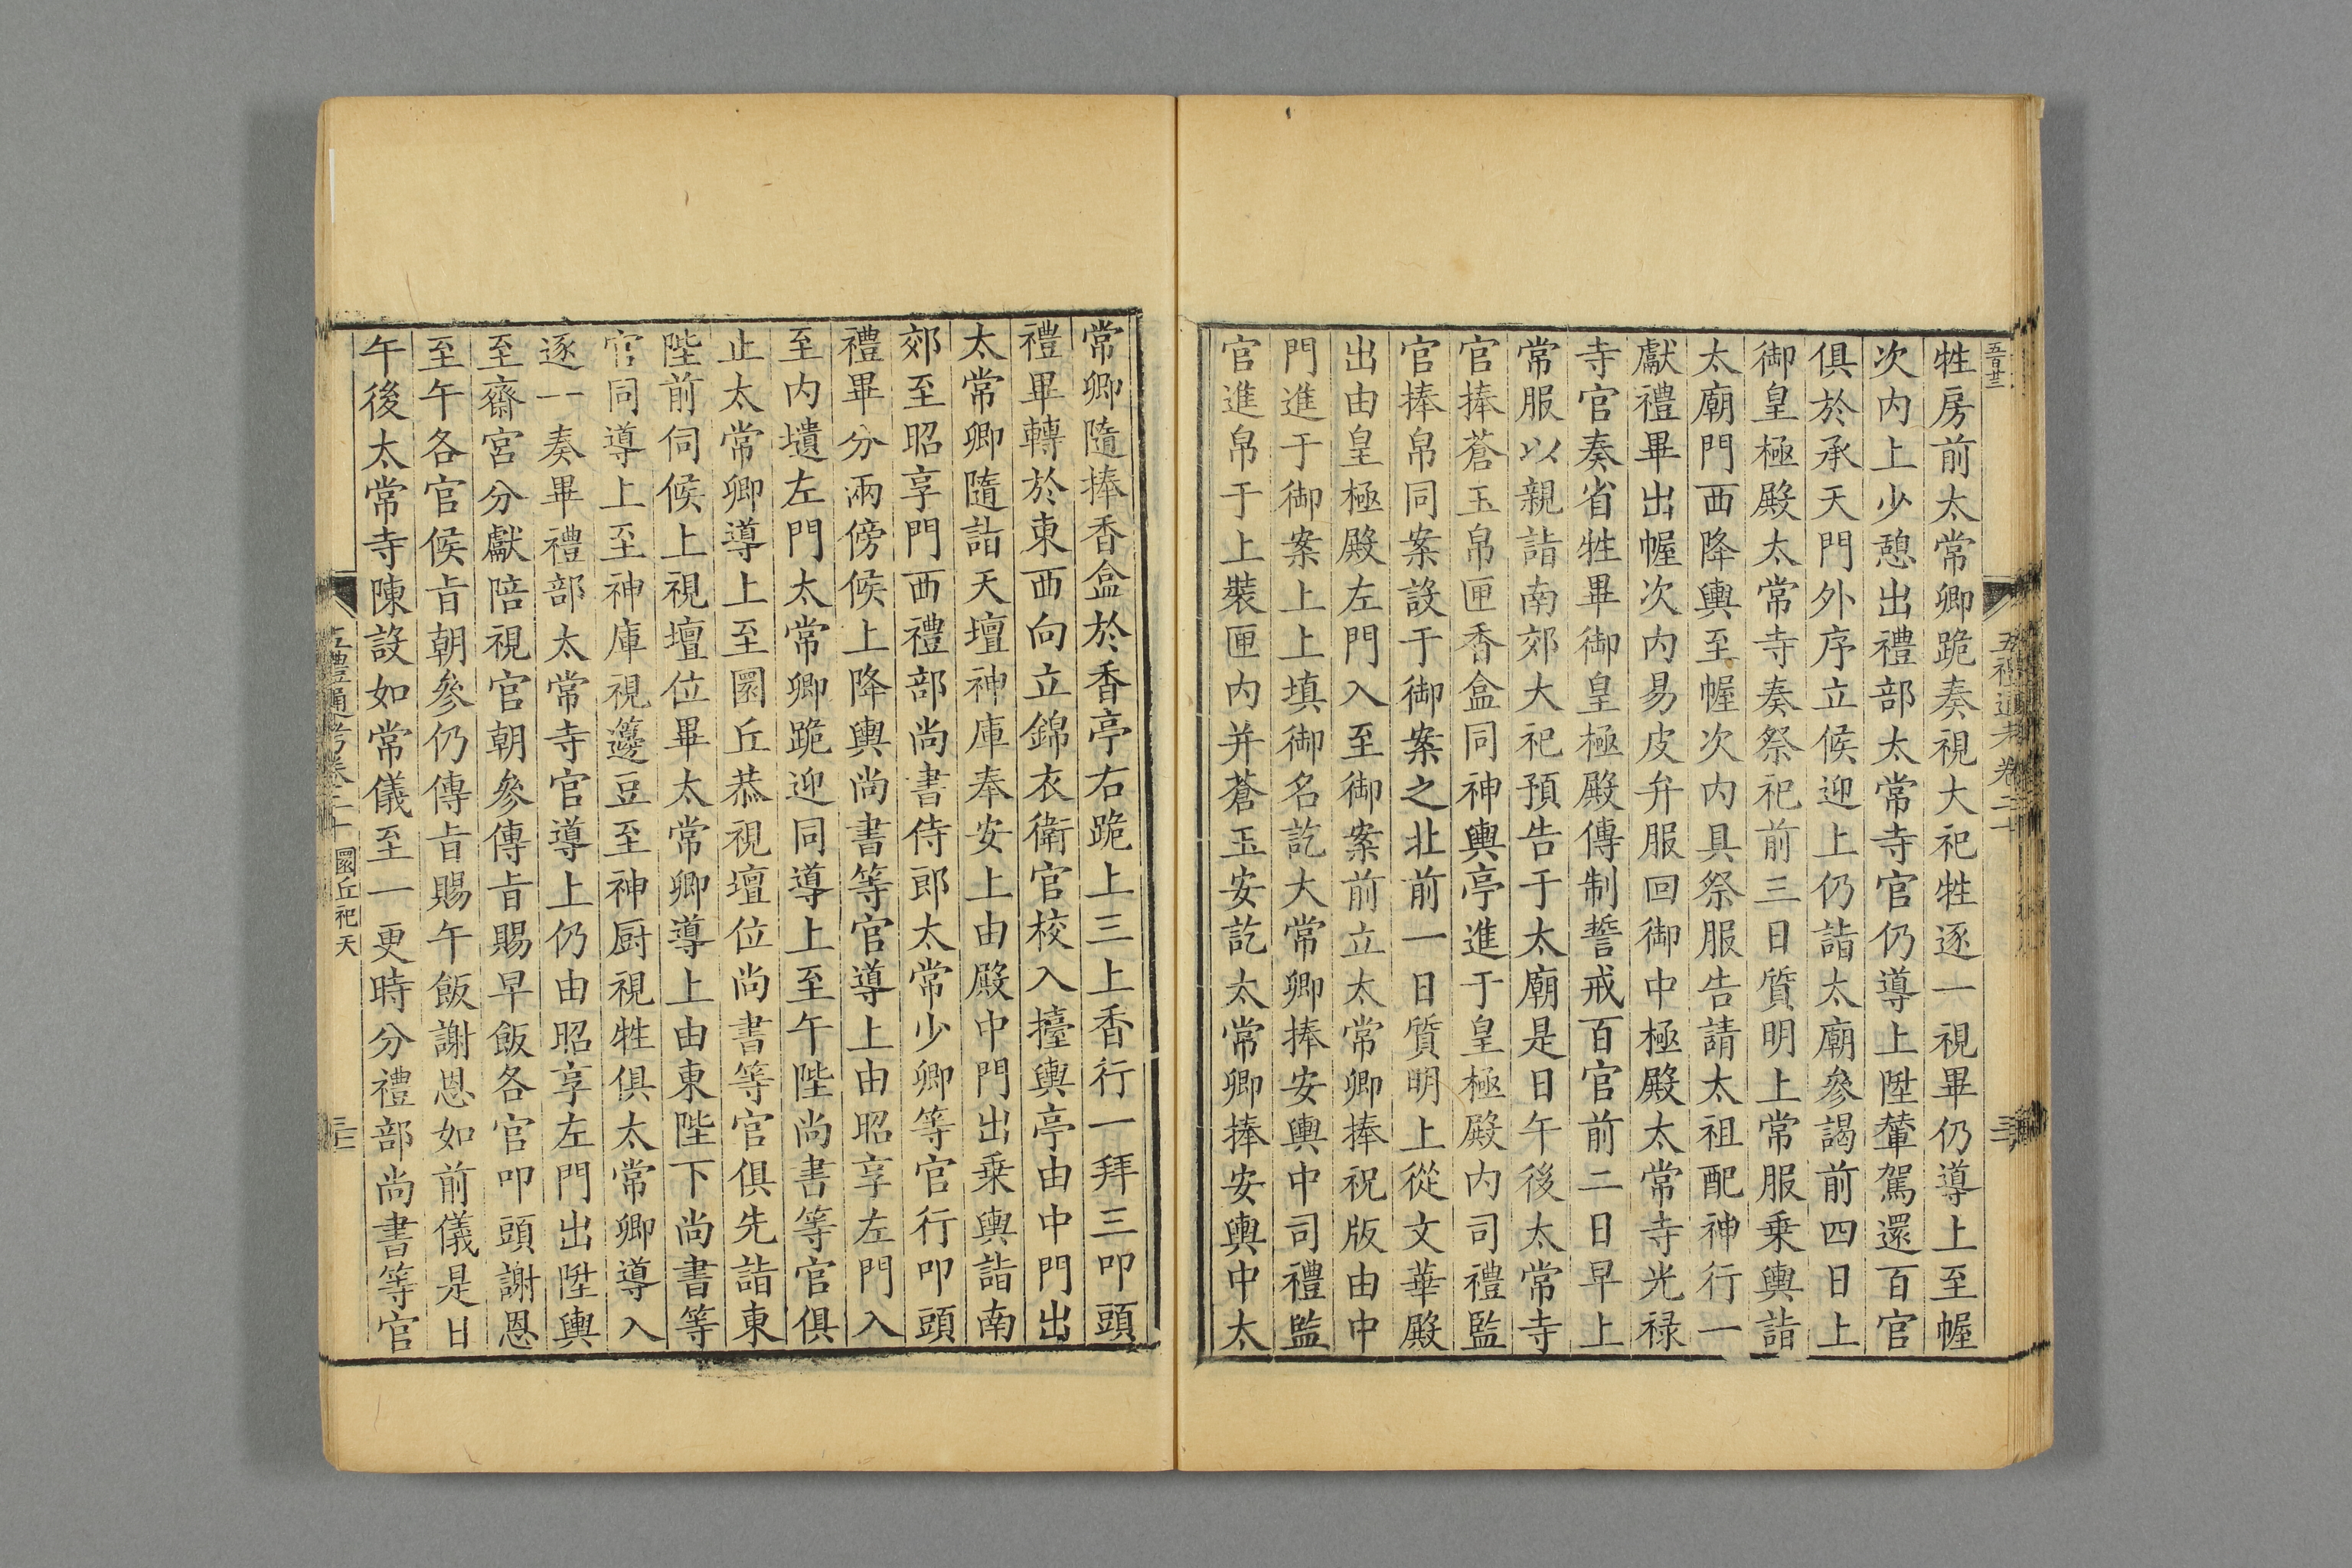 五百廿三
牲房前太常卿跪奏視大祀牲逐一視畢仍導上至幄
次内上少憩出禮部太常寺官仍導上陞輦駕還百官
俱於承天門外序立候迎上仍詣太廟參謁前四日上
御皇極殿太常寺奏祭祀前三日質明上常服乗輿詣
太廟門西降輿至幄次内具祭服告請太祖配神行一
獻禮畢出幄次内易皮弁服回御中極殿太常寺光禄
寺官奏省牲畢御皇極殿傳制誓戒百官前二日早上
常服以親詣南郊大祀預告于太廟是日午後太常寺
官捧蒼玉帛匣香盒同神輿亭進于皇極殿内司禮監
官捧帛同案設于御案之北前一日質明上從文華殿
出由皇極殿左門入至御案前立太常卿捧祝版由中
門進于御案上上填御名訖大常卿捧安輿中司禮監
官進帛于上裝匣内并蒼玉安訖太常卿捧安輿中太
常卿隨捧香盒於香亭右跪上三上香行一拜三叩頭
禮畢轉於東西向立錦衣衛官校入擡輿亭由中門出
太常卿隨詣天壇神庫奉安上由殿中門出乗輿詣南
郊至昭享門西禮部尚書侍郎太常少卿等官行叩頭
禮畢分兩傍候上降輿尚書等官導上由昭享左門入
至内壝左門太常卿跪迎同導上至午陛尚書等官俱
止太常卿導上至圜丘恭視壇位尚書等官俱先詣東
陛前伺候上視壇位畢太常卿導上由東陛下尚書等
官同導上至神庫視籩豆至神厨視牲俱太常卿導入
逐一奏畢禮部太常寺官導上仍由昭享左門出陞輿
至齋宮分獻陪視官朝參傳旨賜早飯各官叩頭謝恩
至午各官候旨朝參仍傳旨賜午飯謝恩如前儀是日
午後太常寺陳設如常儀至一更時分禮部尚書等官
五禮通考卷二十 圜丘祀天